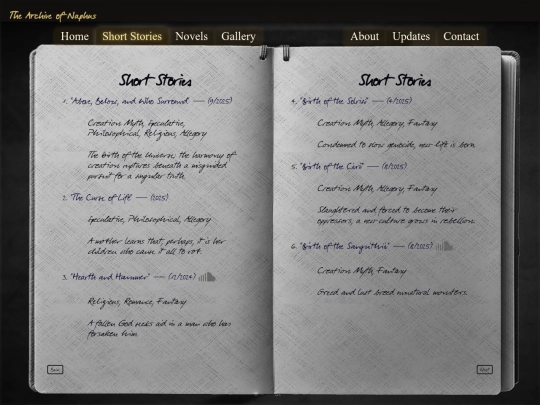 The Archive of Naphus
Home Short Stories Novels Gallery
About Updates Contact
Short Stories
1. "Above, Below, and Who Surround" — (9/2025)
Creation Myth, Speculative,
Philosophical, Religious, Allegory
The birth of the Universe; the harmony of
creation ruptures beneath a misguided
pursuit for a singular truth.
2. "The Curse of Life" — (2025)
Speculative, Philosophical, Allegory
A mother learns that, perhaps, it is her
children who cause it all to rot.
3. "Hearth and Hammer" — (12/2024)
Religious, Romance, Fantasy
A fallen God seeks aid in a man who has
forsaken him.
Short Stories
4. "Birth of the" — (4/2025)
Creation Myth, Allegory, Fantasy
Condemned to slow genocide, new life is born.
5. "Birth of the" — (8/2025)
Creation Myth, Allegory, Fantasy
Slaughtered and forced to become their
oppressors, a new culture grows in rebellion.
6. "Birth of the" — (8/2025)
Creation Myth, Fantasy
Greed and lust breed unnatural wonders.
Next